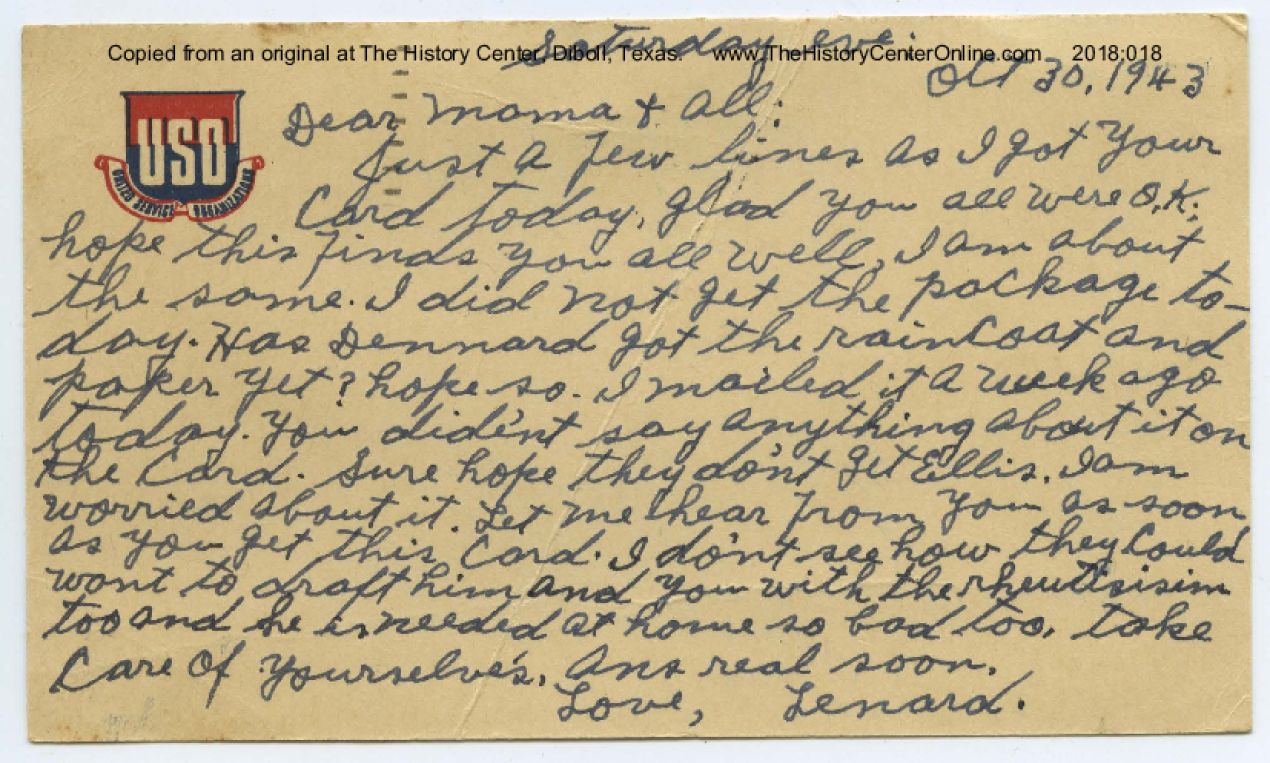 Saturday eve.
Copied from an original at The History Center, Diboll, Texas. www.TheHistoryCenterOnline.com 2018:018
Oct 30, 1943
USO
UNITED SERVICE ORGANIZATIONS
Dear Moma & all:
Just a few lines as I got your
Card today, glad you all were O.K.
hope this finds you all well, I am about
the same. I did not get the package to-
day. Has Dennard got the raincoat and
paper yet? hope so. I mailed it a week ago
today. You did'nt say anything about it on
the Card. Sure hope they don't get Ellis. I am
worried about it. Let me hear from you as soon
as you get this Card. I don't see how they could
want to draft him and you with the rheutisisim
too and he is needed at home so bad too. take
Care of yourselve's. Ans real soon.
Love, Lenard.